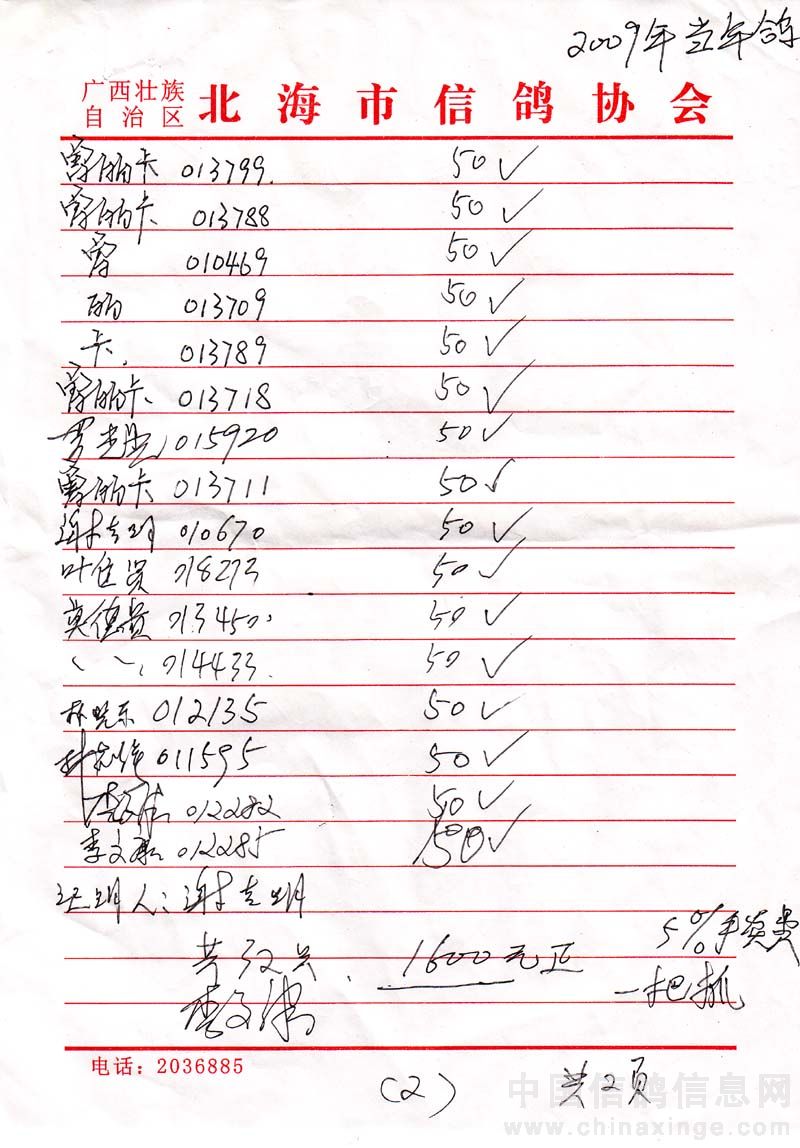 2009年当年鸽
广西壮族
自治区
北海市信鸽协会
的卡 013799. 50✓
的卡 013788 50✓
010469 50✓
的 013709 50✓
卡. 013789 50✓
的卡 013718 50✓
罗 015920 50✓
的卡 013711 50✓
谢克明 010670 50✓
叶 018273 50✓
莫德贵 013450. 50✓
014433. 50✓
林晓东 012135 50✓
林志 011595 50✓
李文 012282 50✓
李文 012285 50✓
证明人:谢克明
共32只. 1600元正
5%手续费
李文
一把抓
电话:2036885
(2)
共2页
中国信鸽信息网
www.chinaxinge.com